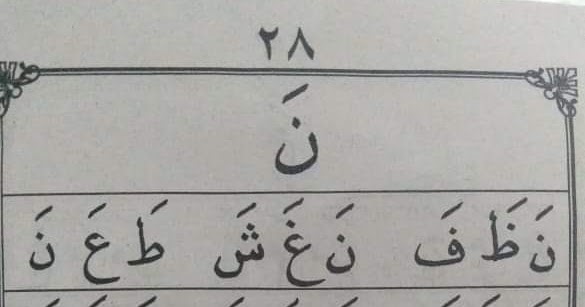 ٢٨
نَ
نَ ظَ فَ نَ غَ شَ طَ عَ نَ